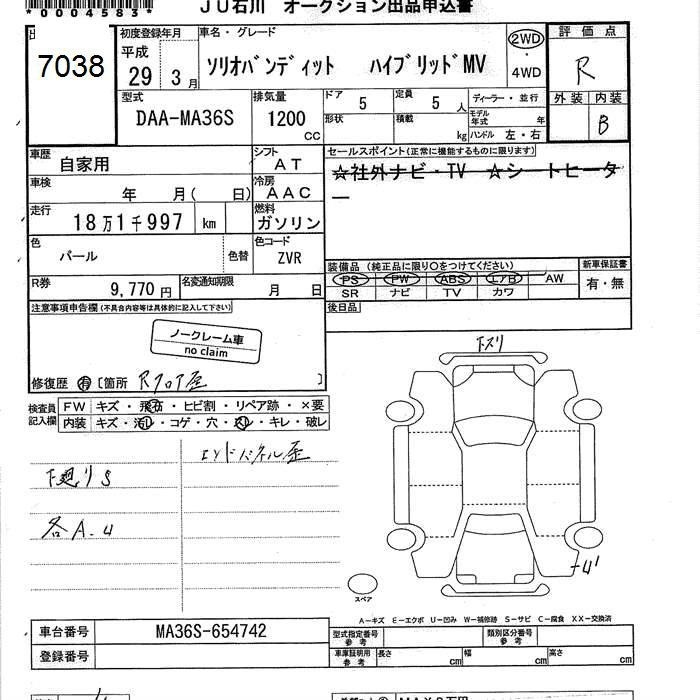 *0004583*
JU石川 オークション出品申込書
7038
初度登録年月
平成
29年 3月
車名・グレード
ソリオバンディット ハイブリッドMV
2WD
・4WD
評価点
R
外装 内装
B
型式
DAA-MA36S
排気量
1200
CC
ドア 5
定員 5 人
形状
積載 kg
ディーラー・並行
モデル年式 年
ハンドル 左・右
車歴
自家用
シフト
AT
車検
年 月( 日)
冷房
AAC
走行
18万1千997 km
燃料
ガソリン
色
パール
色替
色コード
ZVR
R券
9,770 円
名変通知期限
月 日
セールスポイント(正常に機能するものに限ります)
☆社外ナビ・TV ☆シートヒータ
ー
装備品(純正品に限り○をつけてください)
PS PW ABS エアB AW
SR ナビ TV カワ
新車保証書
有・無
後日品
注意事項申告欄(不具合内容等は具体的に記入して下さい)
ノークレーム車
no claim
修復歴 有 〔箇所 Rフロア歪 〕
検査員
記入欄
FW キズ・飛石・ヒビ割・リペア跡・×要
内装 キズ・汚レ・コゲ・穴・スレ・キレ・破レ
エンドパネル歪
下廻りS
各A.U
下スリ
U'
スペア
A-キズ E-エクボ U-凹み W-補修跡 S-サビ C-腐食 XX-交換済
車台番号
MA36S-654742
登録番号
型式指定番号
参考
類別区分番号
参考
車庫証明用
参考
長さ cm
幅 cm
高さ cm